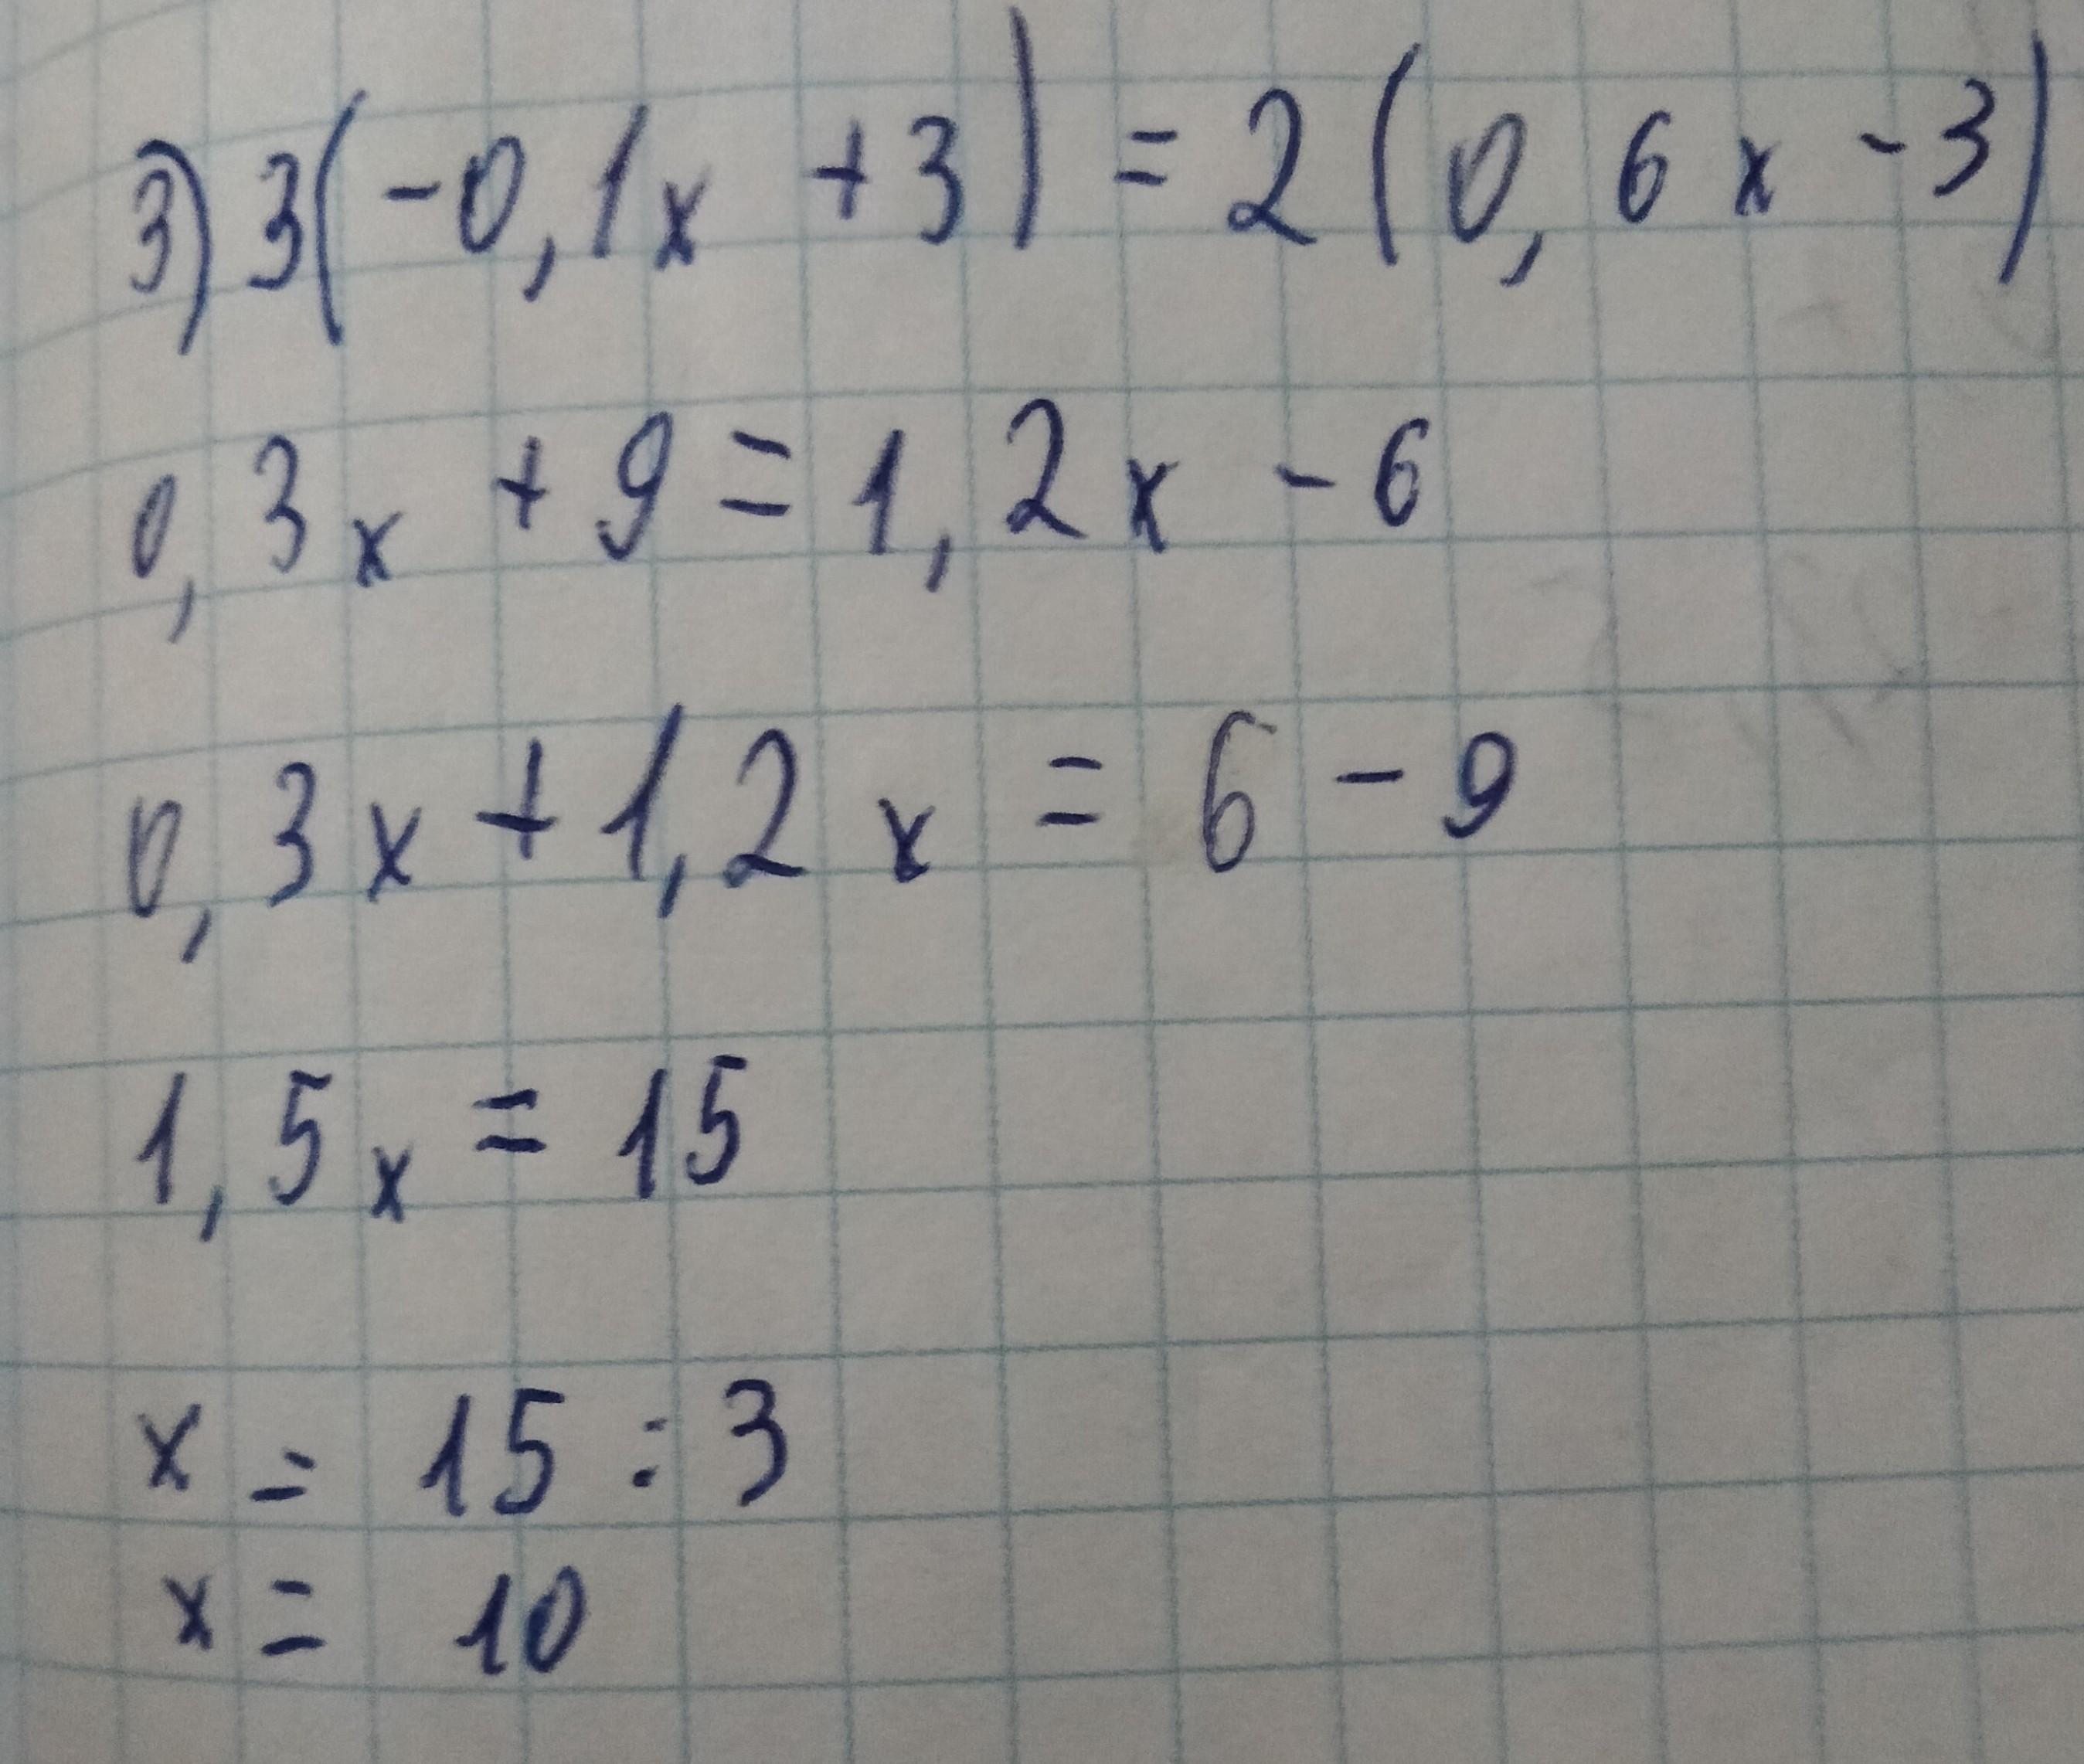 3) 3(-0,1x +3) = 2(0,6x -3)
0,3x +9 = 1,2x -6
0,3x +1,2x = 6 -9
1,5x = 15
x = 15 : 3
x = 10